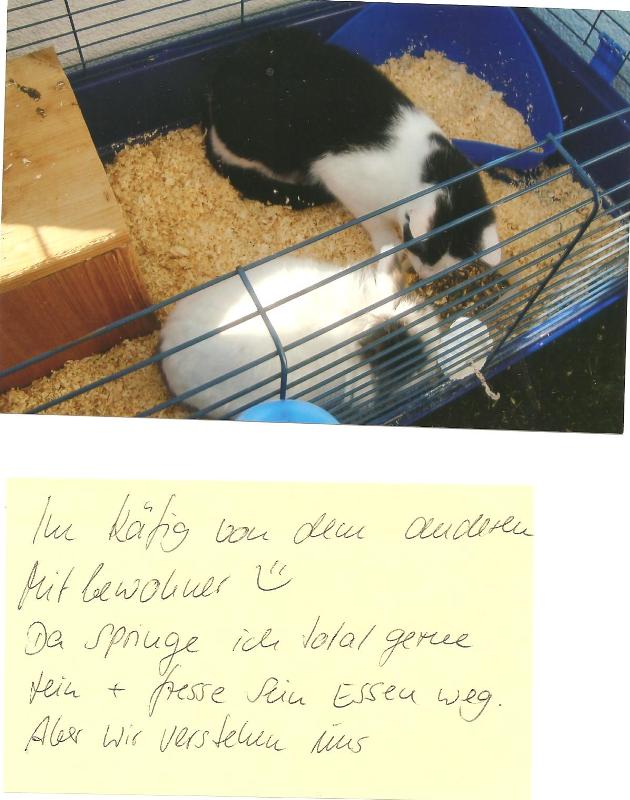 Im Käfig von dem anderen
Mitbewohner
Da springe ich total gerne
rein + fresse sein Essen weg.
Aber wir verstehen uns